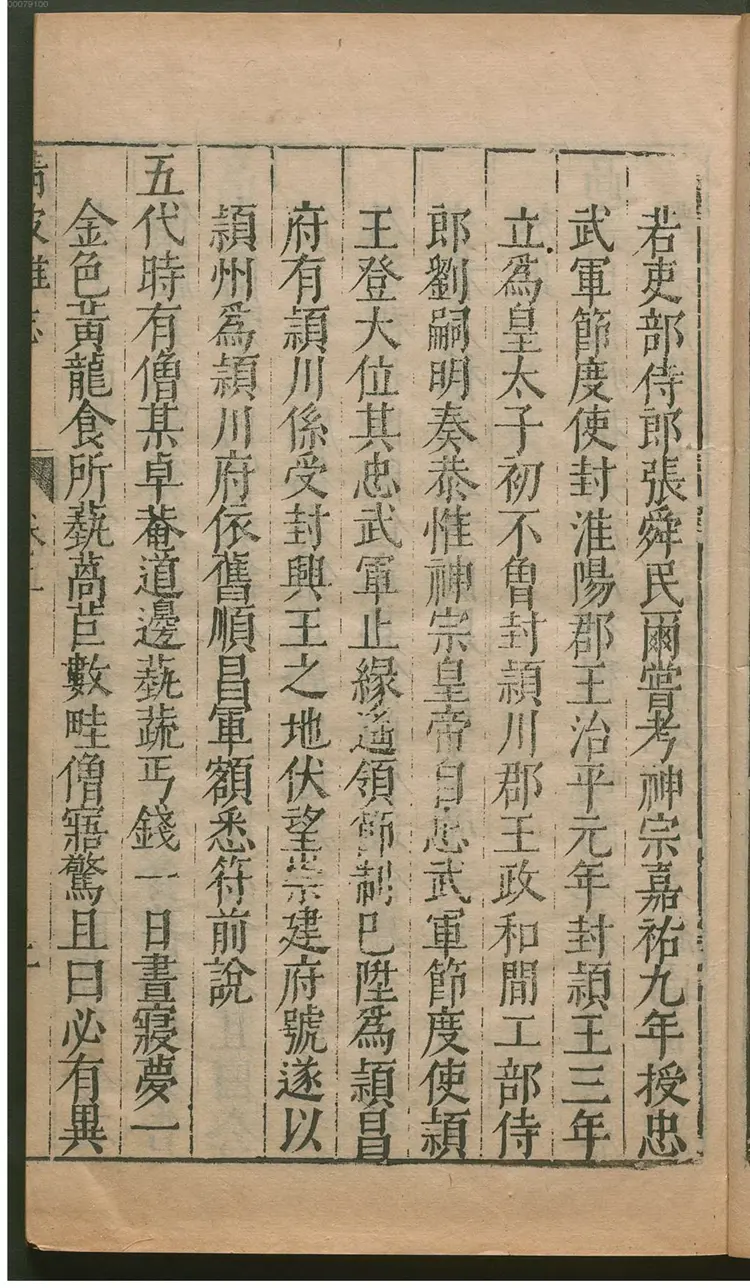 00079100
若吏部侍郎張舜民爾嘗考神宗嘉祐九年授忠
武軍節度使封淮陽郡王治平元年封頴王三年
立爲皇太子初不曾封頴川郡王政和間工部侍
郎劉嗣明奏恭惟神宗皇帝自忠武軍節度使頴
王登大位其忠武軍止緣遥領節制已陞爲頴昌
府有頴川係受封興王之地伏望崇建府號遂以
頴州爲頴川府依舊順昌軍額悉符前說
五代時有僧某卓菴道邊蓺蔬丐錢一日晝寢夢一
金色黃龍食所蓺萵苣數畦僧寤驚且曰必有異
清波雜志